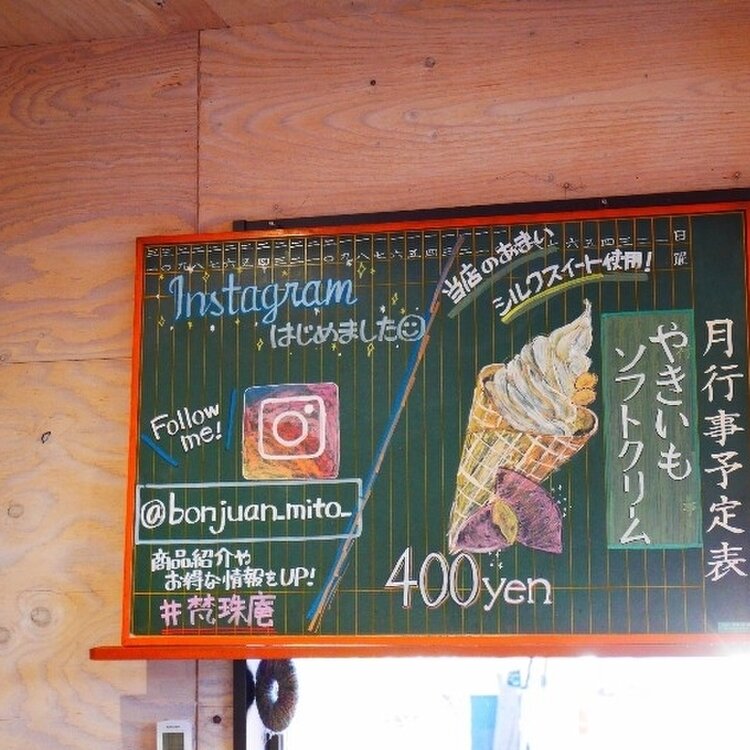 Instagram
はじめました
Follow
me!
@bonjuan_mito_
商品紹介や
お得な情報をUP!
#梵珠庵
当店のあまい
シルクスイート使用!
やきいも
ソフトクリーム
400yen
日
曜
月行事予定表